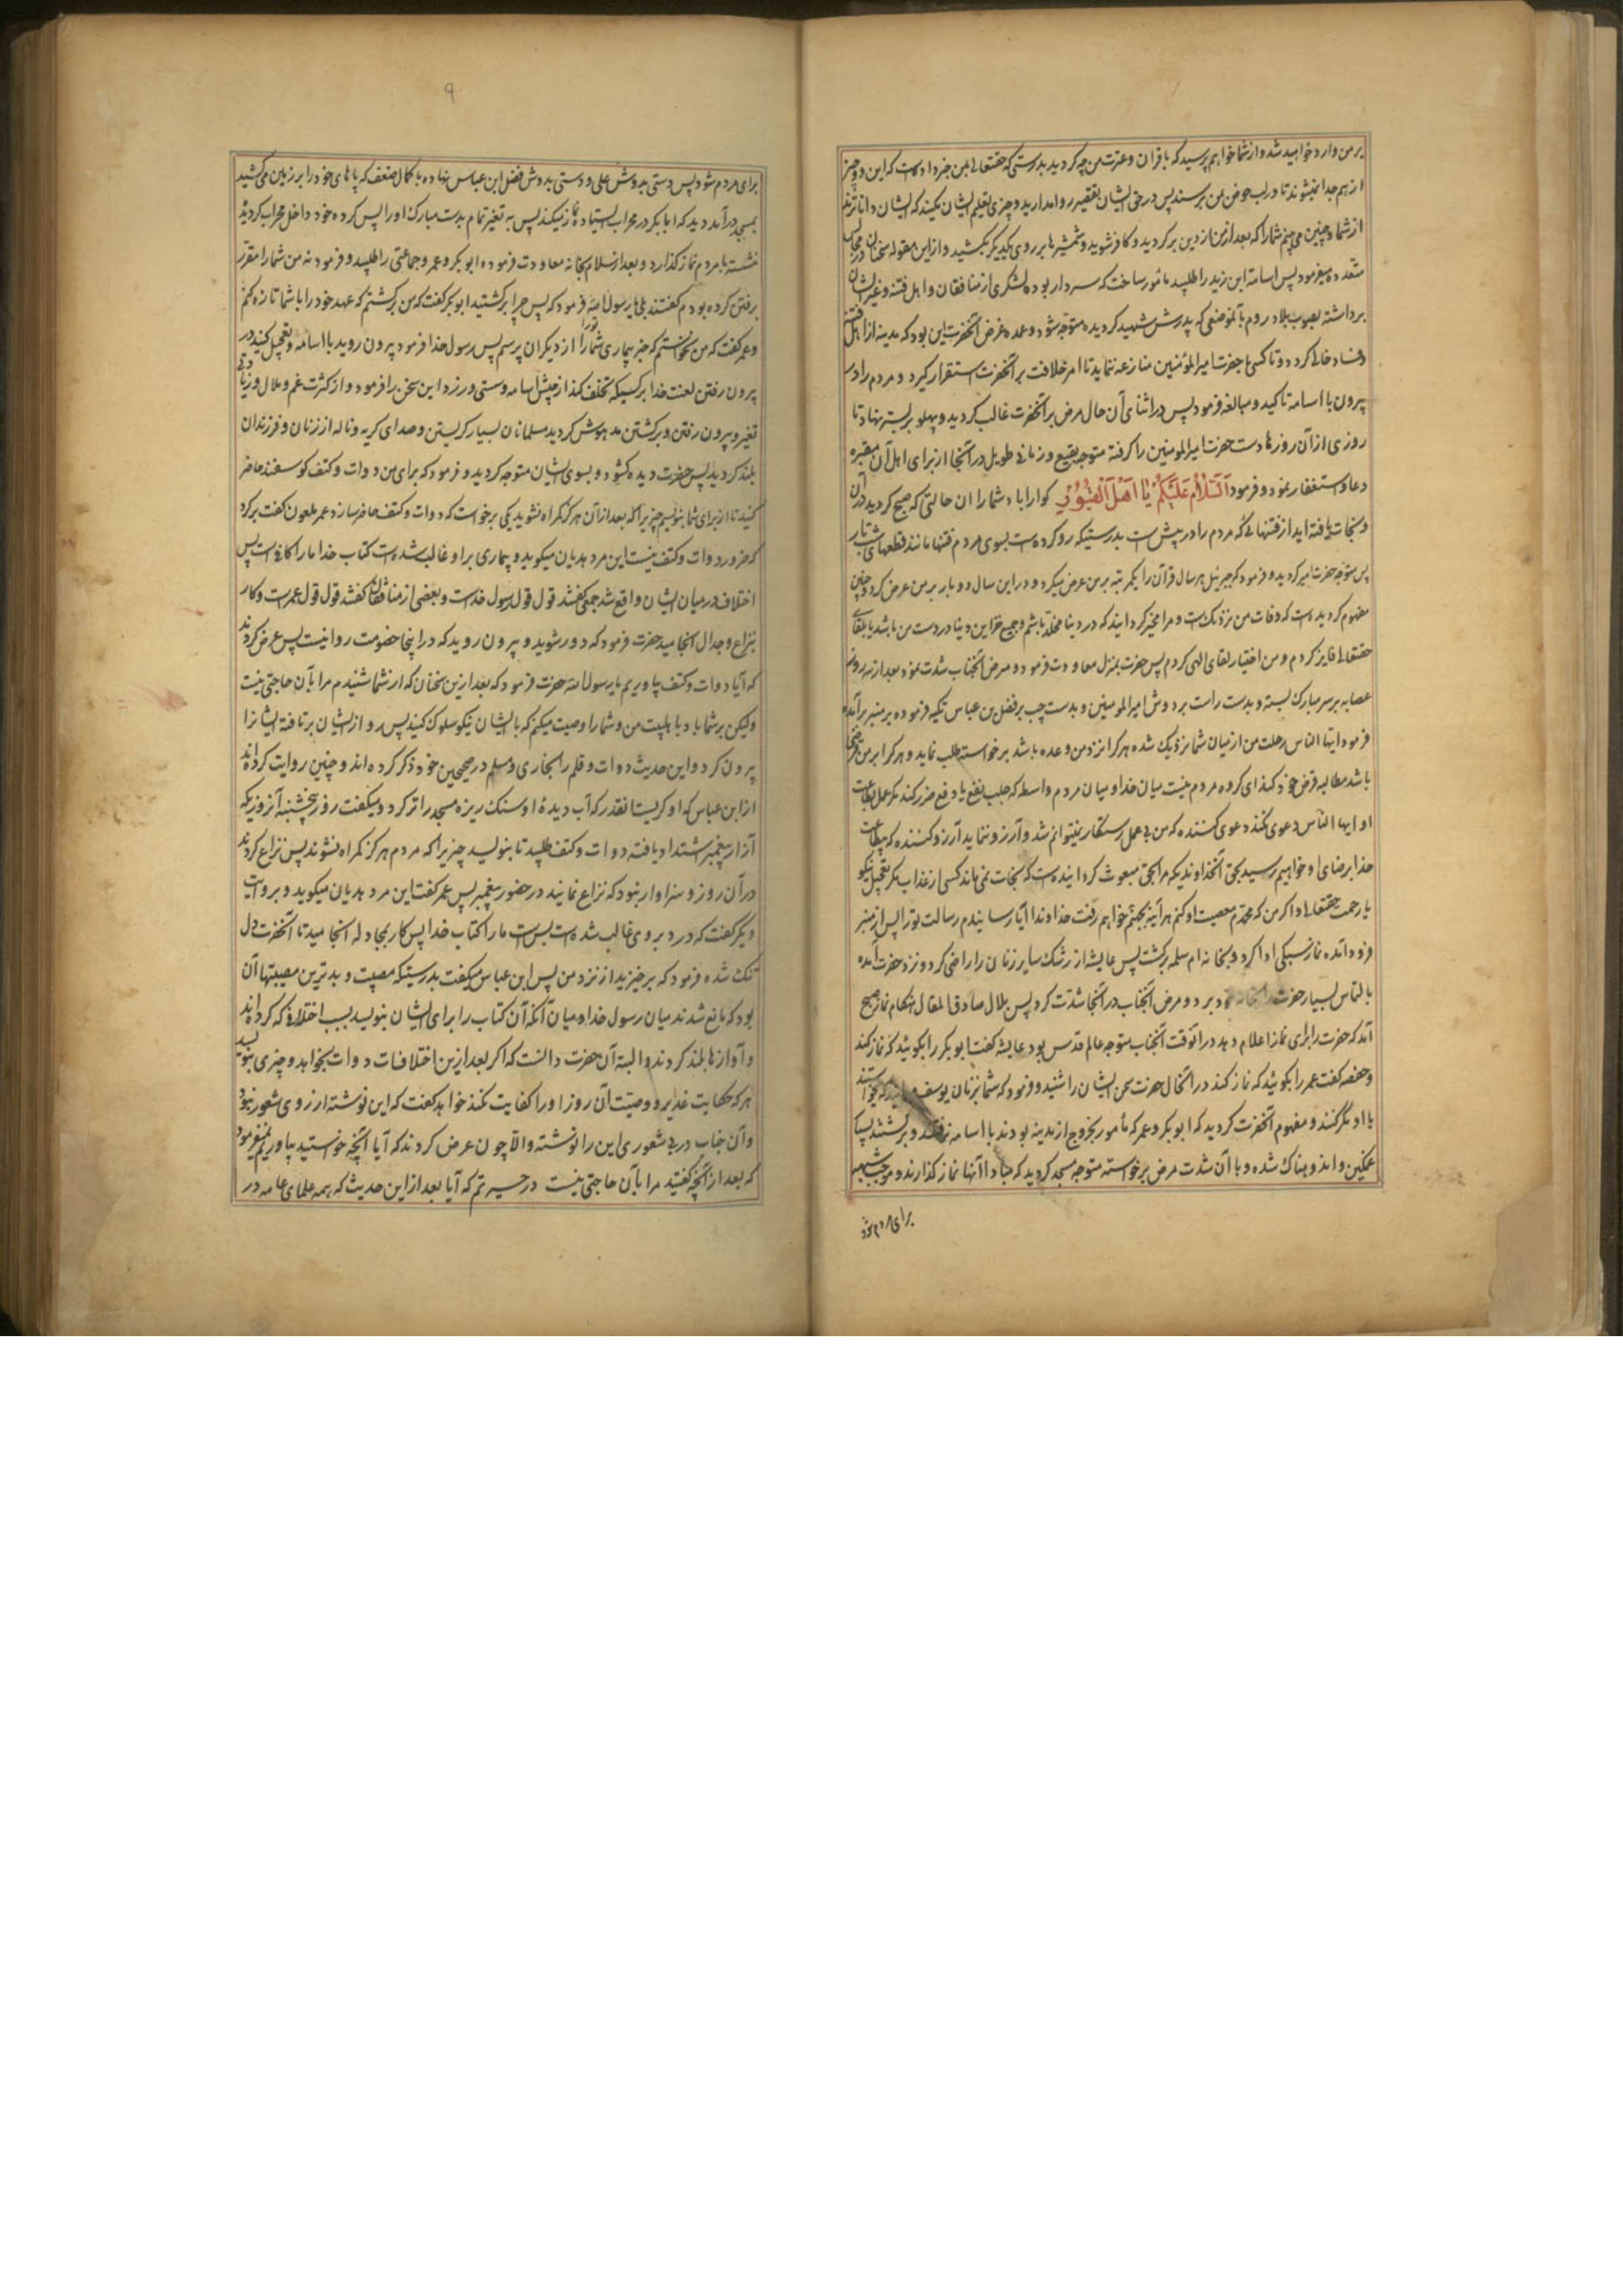 بر من وارد خواهید شد و از شما خواهم پرسید که با قرآن و عترت من چه کردید بدرستی که حقتعالی بمن خبر داده است که این دو چیز
از هم جدا نمیشوند تا در لب حوض بمن برسند پس در حق ایشان تقصیر روا مدارید و چیزی تعلیم ایشان مکنید که ایشان داناترند
از شما و چنین می بینم شما را که بعد از من از دین برگردید و کافر شوید و شمشیرها بر روی یکدیگر بکشید و از این مقوله سخنان در مجالس
متعدده میفرمود پس اسامة ابن زید را طلبید مأمور ساخت که سردار بوده لشکری از منافقان و اهل فتنه و غیر ایشان
برداشته بصوب بلاد روم بآنموضعی که پدرش شهید کردیده متوجه شود و عمده غرض آنحضرت این بود که مدینه از اهل فتنه
و فساد خالی کردد و تا کسی با حضرت امیرالمؤمنین منازعه ننماید تا امر خلافت بر آنحضرت استقرار گیرد و مردم را در
بیرون با اسامه تاکید و مبالغه فرمود پس در اثنای آن حال مرض بر آنحضرت غالب کردید و پهلو بر بستر نهاد تا
روزی از آن روزها دست حضرت امیرالمؤمنین را کرفته متوجه بقیع و زمانی طویل در آنجا از برای اهل آن مقبره
دعا و استغفار نمود و فرمود اَلسَّلامُ عَلَیْکُمْ یٰا اَهْلَ الْقُبُورِ کوارا باد شما را ان حالتی که صبح کردید در آن
و نجات یافته اید از فتنهائی که مردم را در پیش است بدرستیکه رو کرده است بسوی مردم فتنها مانند قطعهای شب تار
پس متوجه حضرت امیر کردید و فرمود که جبرئیل هر سال قرآن را یکمرتبه بر من عرض میکرد و در این سال دو بار بر من عرض کرد و چنین
مفهوم کردیده است که وفات من نزدیک است و مرا مخیر کردانیدند که در دنیا مخلد باشم و جمیع خزاین دنیا در دست من باشد یا بلقای
حقتعالی فایز کردم و من اختیار لقای الهی کردم پس حضرت بمنزل معاودت فرمود و مرض آنجناب شدت نمود بعد از سه روز
عصابه بر سر مبارک بسته و بدست راست بر دوش امیرالمومنین و بدست چپ بر فضل بن عباس تکیه فرموده بر منبر برآمده
فرمود ایها الناس رحلت من از میان شما نزدیک شده هر کرا نزد من وعده باشد برخواسته طلب نماید و هر کرا بر من قرضی
باشد مطالبه قرض خود کند ای کروه مردم نیست میان خدا و میان مردم واسطه که جلب نفع یا دفع ضرر کند مکر عمل بطاعت
او ایها الناس دعوی نکند دعوی کننده که من بی عمل رستکار میتوانم شد و آرزو ننماید آرزو کننده که بی طاعت
خدا برضای او خواهم رسید بحق آنخداوندیکه مرا بحق مبعوث کردانیده است که نجات نمی یابد کسی از عذاب مکر بعمل نیکو
با رحمت حقتعالی و اکر من که محمدم معصیت او کنم هر آینه بجهنم خواهم رفت خداوندا آیا رسانیدم رسالت تو را پس از منبر
فرود آمده نماز سبکی ادا کرد و بخانه ام سلمه برکشت پس عایشه از رشک سایر زنان را راضی کرد و نزد حضرت آمده
بالتماس بسیار حضرت را بخانه خود برد و مرض آنجناب در آنجا شدت کرد پس بلال صادق المقال هنکام نماز صبح
آمد که حضرت را برای نماز اعلام دهد در آنوقت آنجناب متوجه عالم قدس بود عایشه کفت ابوبکر را بکوئید که نماز کند
و حفصه کفت عمر را بکوئید که نماز کند در آنحال حضرت سخن ایشان را شنید و فرمود که شما بزنان یوسف میمانید که میخواستند
با او مکر کنند و مفهوم آنحضرت کردید که ابوبکر و عمر که مأمور بخروج از مدینه بودند با اسامه نرفتند و برکشتند بسیار
غمکین و اندوهناک شده و با آن شدت مرض برخواسته متوجه مسجد کردید که مبادا آنها نماز کذارند و موجب شبهه
برای مردم شود
۹
برای مردم شود پس دستی بدوش علی و دستی بدوش فضل ابن عباس نهاده با کمال ضعف که پاهای خود را بر زمین میکشید
بمسجد درآمد دید که ابابکر در محراب ایستاده نماز میکند پس به تغیر تمام بدست مبارک او را پس کرده خود داخل محراب کردید
نشسته با مردم نماز کذارد و بعد از سلام بخانه معاودت فرموده ابوبکر و عمر و جماعتی را طلبید و فرمود نه من شما را مقرر
رفتن کرده بودم کفتند بلی یا رسول الله فرمود که پس چرا برکشتید ابوبکر کفت که من برکشتم که عهد خود را با شما تازه کنم
و عمر کفت که من نخواستم که خبر بیماری شما را از دیکران پرسم پس رسول خدا فرمود بیرون روید با اسامه و تعجیل کنید در
بیرون رفتن لعنت خدا بر کسیکه تخلف کند از جیش اسامه و سستی ورزد این سخن را فرمود و از کثرت غم و ملال و زیادتی
تغیر و بیرون رفتن و برکشتن مدهوش کردید مسلمانان بسیار کریستن و صدای کریه و ناله از زنان و فرزندان
بلند کردید پس حضرت دیده کشود و بسوی ایشان متوجه کردید و فرمود که برای من دوات و کتف کوسفند حاضر
کنید تا از برای شما بنویسم چیزیرا که بعد از آن هرکز کمراه نشوید یکی برخواست که دوات و کتف حاضر سازد عمر ملعون کفت برکرد
که ضرور دوات و کتف نیست این مرد هذیان میکوید و بیماری بر او غالب شده است کتاب خدا ما را کافی است پس
اختلاف در میان ایشان واقع شد جمعی کفتند قول قول رسول خداست و بعضی از منافقان کفتند قول قول عمر است و کار
بنزاع و جدال انجامید حضرت فرمود که دور شوید و بیرون روید که در اینجا خصومت روا نیست پس عرض کردند
که آیا دوات و کتف بیاوریم یا رسول الله حضرت فرمود که بعد ازین سخنان که از شما شنیدم مرا بآن حاجتی نیست
ولیکن بر شما باد باهلبیت من و شما را وصیت میکنم که با ایشان نیکو سلوک کنید پس رو از ایشان برتافته ایشانرا
بیرون کرد و این حدیث دوات و قلم را بخاری و مسلم در صحیحین خود ذکر کرده اند و چنین روایت کرده اند
از ابن عباس که او کریست آنقدر که آب دیدهٔ او سنک ریزه مسجد را تر کرد و میکفت روز پنجشنبه آنروزیکه
آزار پیغمبر اشتداد یافته دوات و کتف طلبید تا بنویسد چیزیرا که مردم هرکز کمراه نشوند پس نزاع کردند
در آن روز و سزاوار نبود که نزاع نمایند در حضور پیغمبر پس عمر کفت این مرد هذیان میکوید و بروایت
دیکر کفت که درد بر وی غالب شده است بس است ما را کتاب خدا پس کار بمجادله انجامید تا آنحضرت دل
تنک شده فرمود که برخیزید از نزد من پس ابن عباس میکفت بدرستیکه مصیبت و بدترین مصیبتها آن
بود که مانع شدند میان رسول خدا و میان آنکه آن کتاب را برای ایشان بنویسد بسبب اختلافی که کرده اند
و آوازها بلند کردند و البته آن حضرت دانست که اکر بعد ازین اختلافات دوات بخواهد و چیزی بنویسد
هر که حکایت غدیر و وصیت آن روز او را کفایت نکند خواهد کفت که این نوشته از روی شعور نبود
و آن جناب در بی شعوری این را نوشته و الا چون عرض کردند که آیا آنچه خواستید بیاوریم نمیفرمود
که بعد از آنچه کفتید مرا بآن حاجتی نیست در حیرتم که آیا بعد از این حدیث که همه علمای عامه در